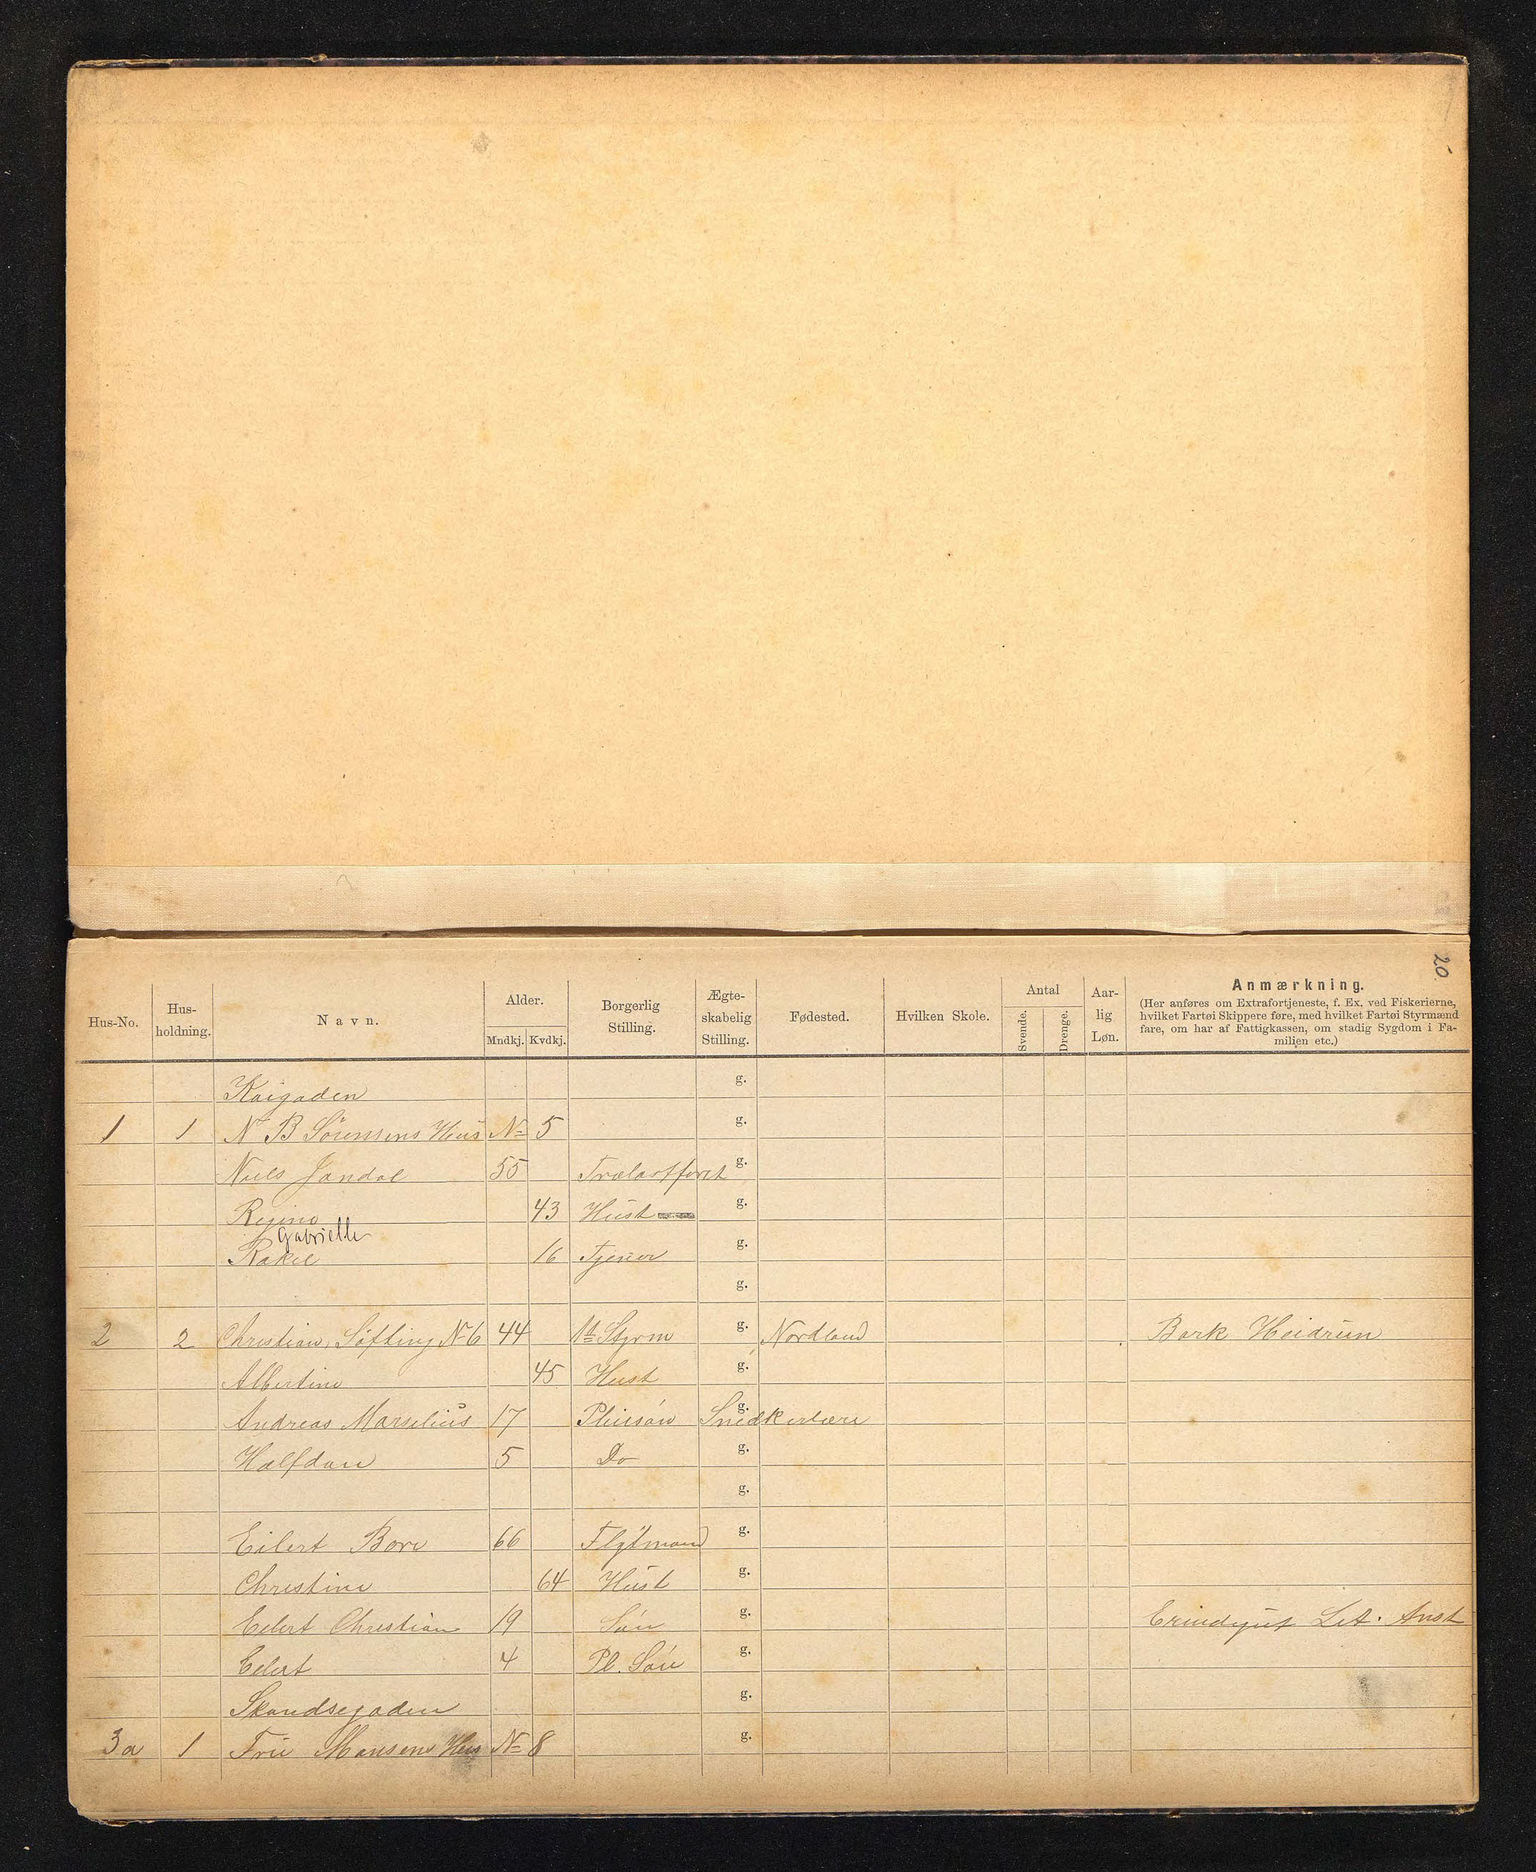 20
Hus-No. Hus-holdning. Navn. Alder. Mndkj. Kvdkj. Borgerlig Stilling. Ægte-skabelig Stilling. Fødested. Hvilken Skole. Antal Svende. Drenge. Aar-lig Løn. Anmærkning.
(Her anføres om Extrafortjeneste, f. Ex. ved Fiskerierne,
hvilket Fartøi Skippere føre, med hvilket Fartøi Styrmænd
fare, om har af Fattigkassen, om stadig Sygdom i Fa-
milien etc.)
Kaigaden g.
1 1 N B Sörenssens Hus № 5 g.
Niels Jandal 55 g.
Regine 43 Hust g.
Gabrielle
Rakel 16 Tjener g.
g.
2 2 Christian Søfting № 6 44 1ste Styrm g. Nordland Bark Heidrun
Albertine 45 Hust g.
Andreas Marselius 17 Pleiesön g. Snedkerlære
Halfdan 5 Do g.
g.
Eilert Bore 66 g.
Christine 64 Hust g.
Eilert Christian 19 Sön g.
Eilert 4 Pl. Sön g.
Skandsegaden g.
3a 1 Fru Monsens Hus № 8 g.